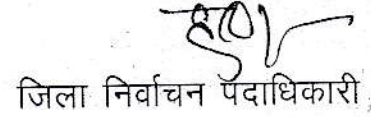 जिला निर्वाचन पदाधिकारी